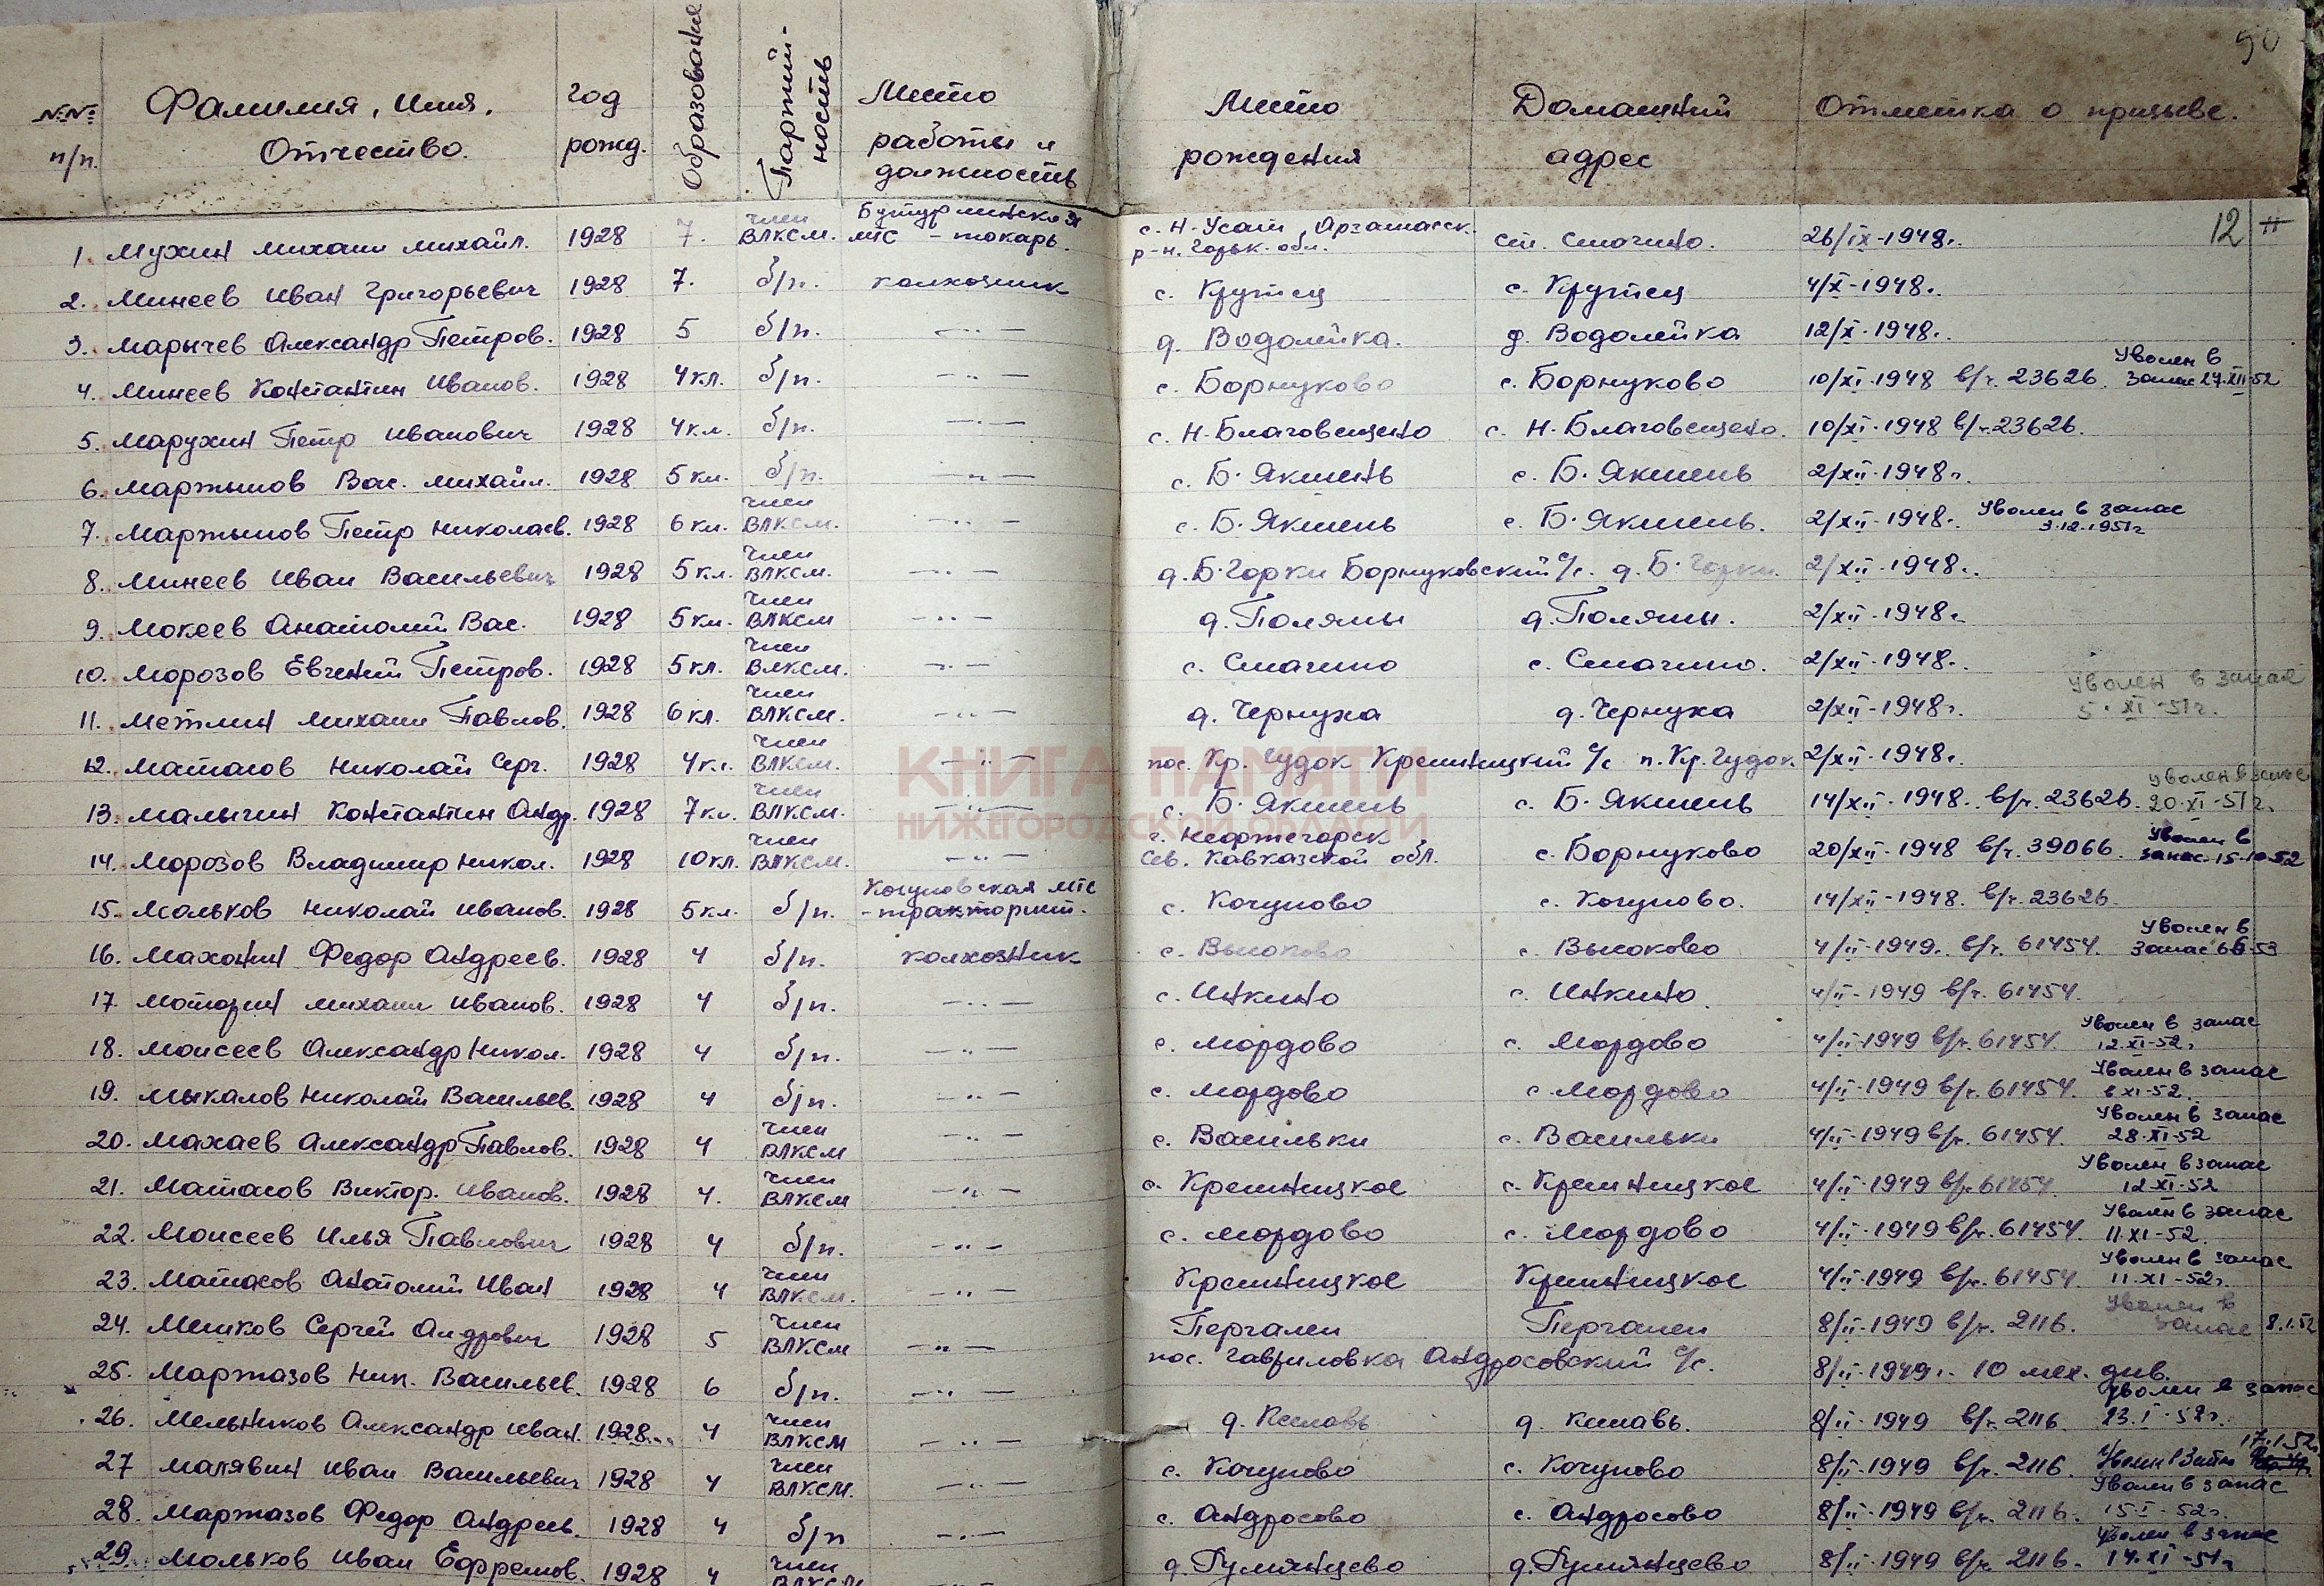 90
№№ п/п. Фамилия, имя, Отчество. Год рожд. Образование Партий-ность Место работы и должность Место рождения Домашний адрес Отметка о призыве.
12
1. Мухин Михаил Михайл. 1928 7. член ВЛКСМ. Бутурлинская МТС - токарь. с. Н-Усат, Арзамасск. р-н. Горьк. обл. ст. Смагино. 26/IX-1948г.
2. Минеев Иван Григорьевич 1928 7. б/п. колхозник с. Крутец с. Крутец 4/X-1948г.
3. Марычев Александр Петров. 1928 5 б/п. —··— д. Водолейка. д. Водолейка 12/X-1948г.
4. Минеев Константин Иванов. 1928 4кл. б/п. —··— с. Борнуково с. Борнуково 10/XI-1948 в/ч. 23626. Уволен в запас 27.XII-52
5. Марухин Петр Иванович 1928 4кл. б/п. —··— с. Н-Благовещено с. Н-Благовещено. 10/XI-1948 в/ч. 23626.
6. Мартынов Вас. Михайл. 1928 5кл. б/п. —··— с. Б. Якшень с. Б. Якшень 2/XII-1948г.
7. Мартынов Петр Николаев. 1928 6кл. член ВЛКСМ. —··— с. Б. Якшень с. Б. Якшень. 2/XII-1948г. Уволен в запас 3.12.1951г
8. Минеев Иван Васильевич 1928 5кл. член ВЛКСМ. —··— д. Б. Горки Борнуковский с/с. д. Б. Горки. 2/XII-1948г.
9. Мокеев Анатолий Вас. 1928 5кл. член ВЛКСМ —··— д. Поляны д. Поляны. 2/XII-1948г.
10. Морозов Евгений Петров. 1928 5кл. член ВЛКСМ. —··— с. Смагино с. Смагино. 2/XII-1948г.
11. Метлин Михаил Павлов. 1928 6кл. член ВЛКСМ. —··— д. Чернуха д. Чернуха 2/XII-1948г. Уволен в запас 5.XI-51г.
12. Матасов Николай Серг. 1928 4кл. член ВЛКСМ. —··— пос. Кр. Чудок Кремницкий с/с п. Кр. Чудок 2/XII-1948г.
КНИГА ПАМЯТИ
НИЖЕГОРОДСКОЙ ОБЛАСТИ
13. Малыгин Константин Андр. 1928 7кл. член ВЛКСМ. —··— с. Б. Якшень с. Б. Якшень 14/XII-1948. в/ч. 23626. Уволен в запас 20.XI-51г.
14. Морозов Владимир Никол. 1928 10кл. член ВЛКСМ. —··— г. Нефтегорск Сев. Кавказской обл. с. Борнуково 20/XII-1948 в/ч. 39066. Уволен в запас 15-10-52
15. Мольков Николай Иванов. 1928 5кл. б/п. Кочуновская МТС - тракторист. с. Кочуново с. Кочуново. 14/XII-1948. в/ч. 23626.
16. Махонин Федор Андреев. 1928 4 б/п. колхозник с. Высоково с. Высоково 4/II-1949г. в/ч. 61454. Уволен в запас 6-53
17. Маторин Михаил Иванов. 1928 4 б/п. —··— с. Инкино с. Инкино. 4/II-1949 в/ч. 61454.
18. Моисеев Александр Никол. 1928 4 б/п. —··— с. Мордово с. Мордово 4/II-1949 в/ч. 61454. Уволен в запас 12.XI-52г
19. Мыкалов Николай Васильев. 1928 4 б/п. —··— с. Мордово с. Мордово 4/II-1949 в/ч. 61454. Уволен в запас 6 XI-52.
20. Махаев Александр Павлов. 1928 4 член ВЛКСМ —··— с. Васильки с. Васильки 4/II-1949 в/ч. 61454. Уволен в запас 28.XI-52
21. Матасов Виктор. Иванов. 1928 4. член ВЛКСМ —··— с. Кремницкое с. Кремницкое 4/II-1949 в/ч 61454. Уволен в запас 12.XI-52
22. Моисеев Илья Павлович 1928 4 б/п. —··— с. Мордово с. Мордово 4/II-1949 в/ч. 61454. Уволен в запас 11.XI-52.
23. Матасов Анатолий Иван 1928 4 член ВЛКСМ. —··— Кремницкое Кремницкое 4/II-1949 в/ч. 61454. Уволен в запас 11.XI-52г.
24. Мешков Сергей Андрович 1928 5 член ВЛКСМ —··— Пергалеи Пергалеи 8/II-1949 в/ч. 2116. Уволен в запас 8.1.52
25. Мартазов Ник. Васильев. 1928 6 б/п. —··— пос. Гавриловка Андросовский с/с. 8/II-1949г. 10 мех. див.
26. Мельников Александр Иван. 1928 4 член ВЛКСМ —··— д. Кеславь д. Кеславь. 8/II-1949 в/ч. 2116. Уволен в запас 23.I-52г.
27 Малявин Иван Васильевич 1928 4 член ВЛКСМ. —··— с. Кочуново с. Кочуново 8/II-1949 в/ч. 2116. Уволен в запас 17.1.52
28. Мартазов Федор Андреев. 1928 4 б/п —··— с. Андросово с. Андросово 8/II-1949 в/ч. 2116. Уволен в запас 15-I-52г.
29. Мольков Иван Ефремов. 1928 4 член ВЛКСМ д. Румянцево д. Румянцево 8/II-1949 в/ч. 2116. Уволен в запас 14.XI-51г